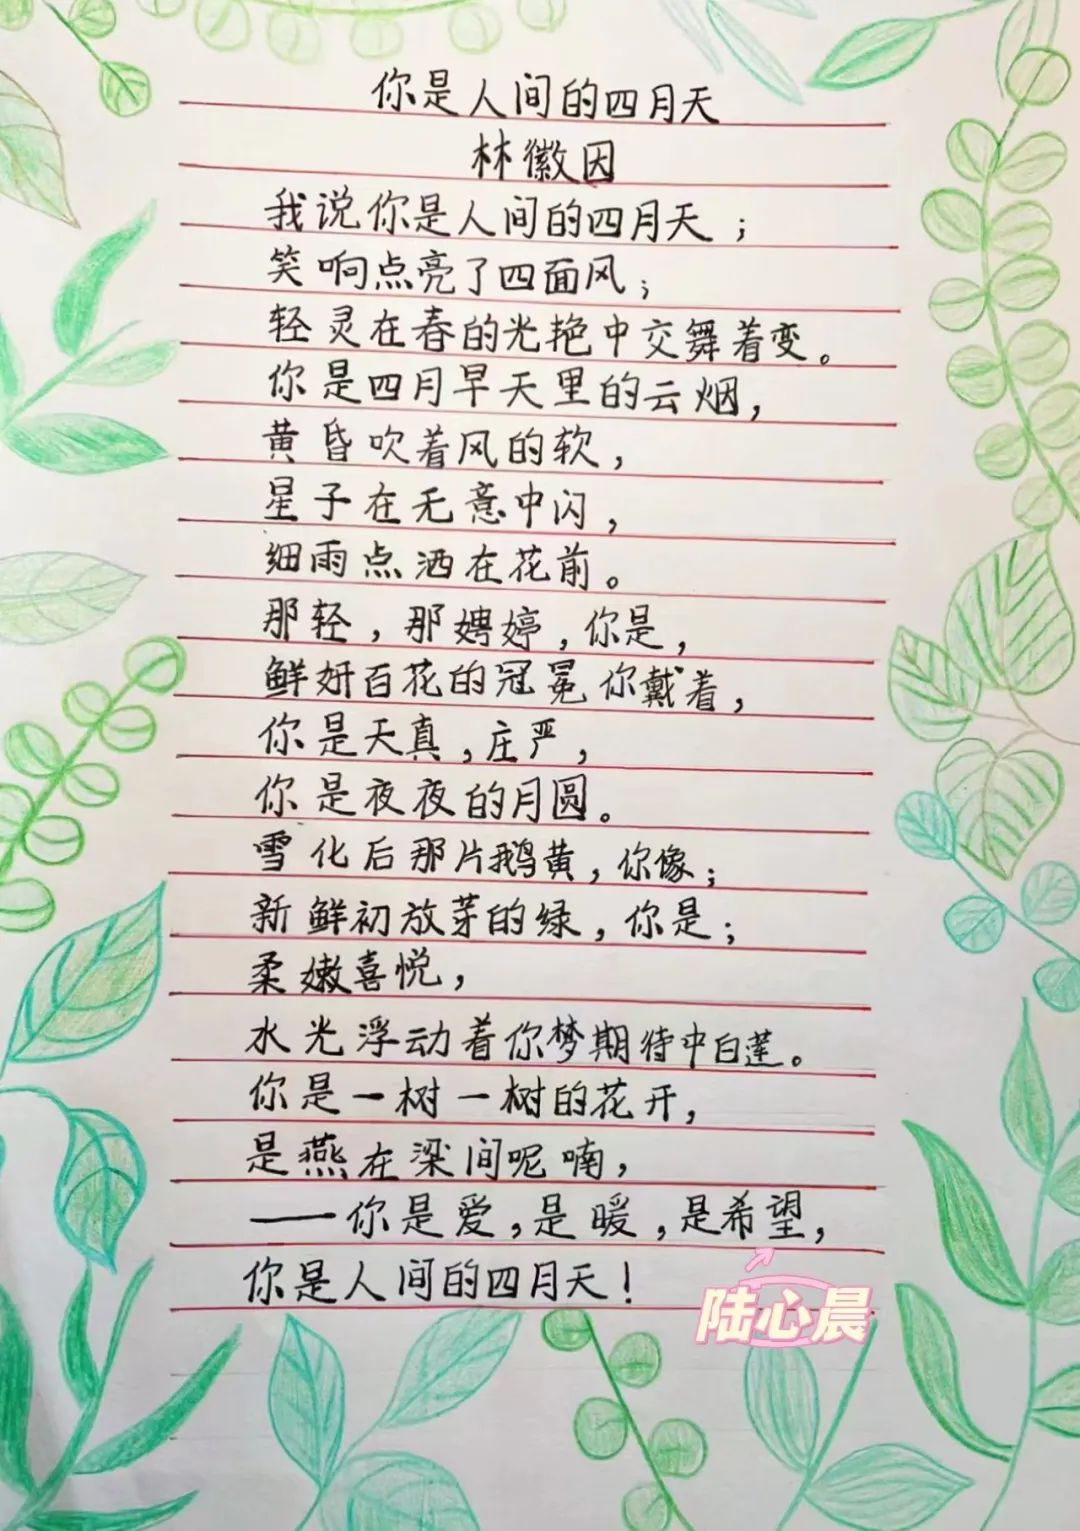 你是人间的四月天
林徽因
我说你是人间的四月天；
笑响点亮了四面风；
轻灵在春的光艳中交舞着变。
你是四月早天里的云烟，
黄昏吹着风的软，
星子在无意中闪，
细雨点洒在花前。
那轻，那娉婷，你是，
鲜妍百花的冠冕你戴着，
你是天真，庄严，
你是夜夜的月圆。
雪化后那片鹅黄，你像；
新鲜初放芽的绿，你是；
柔嫩喜悦，
水光浮动着你梦期待中白莲。
你是一树一树的花开，
是燕在梁间呢喃，
——你是爱，是暖，是希望，
你是人间的四月天！
陆心晨